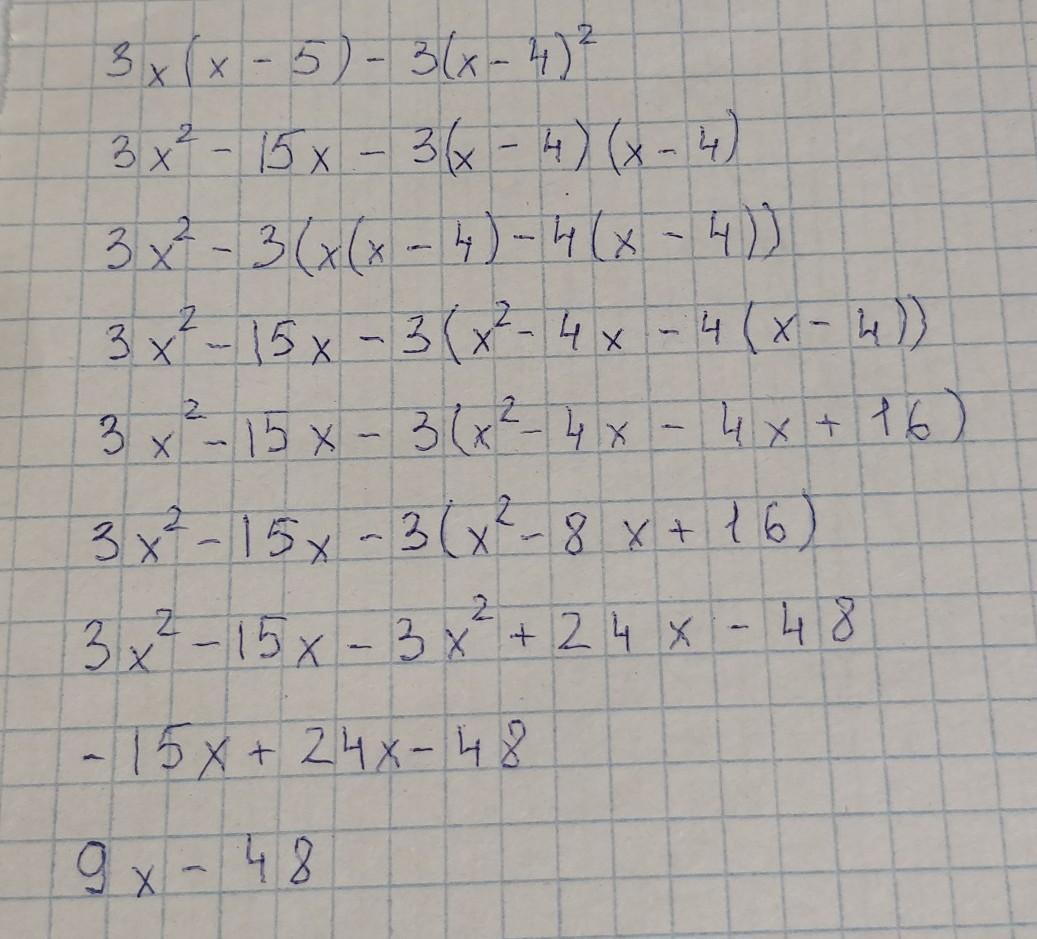 3x(x - 5) - 3(x - 4)²
3x² - 15x - 3(x - 4)(x - 4)
3x² - 3(x(x - 4) - 4(x - 4))
3x² - 15x - 3(x² - 4x - 4(x - 4))
3x² - 15x - 3(x² - 4x - 4x + 16)
3x² - 15x - 3(x² - 8x + 16)
3x² - 15x - 3x² + 24x - 48
- 15x + 24x - 48
9x - 48